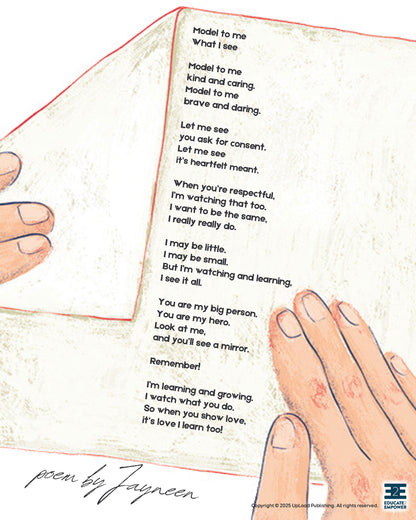 Model to me
What I see
Model to me
kind and caring.
Model to me
brave and daring.
Let me see
you ask for consent.
Let me see
it's heartfelt meant.
When you're respectful,
I'm watching that too.
I want to be the same,
I really really do.
I may be little.
I may be small.
But I'm watching and learning,
I see it all.
You are my big person.
You are my hero.
Look at me,
and you'll see a mirror.
Remember!
I'm learning and growing.
I watch what you do.
So when you show love,
it's love I learn too!
poem by Jayneen
E2E
EDUCATE2
EMPOWER
Copyright © 2025 UpLoad Publishing. All rights reserved.